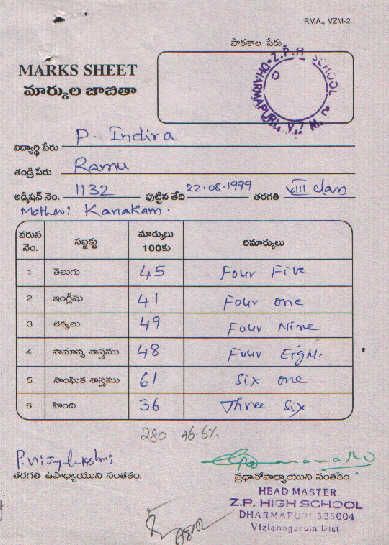 RVA., VZM-2
పాఠశాల పేరు
Z.P.H SCHOOL
MARKS SHEET
మార్కుల జాబితా
విద్యార్థి పేరు P. Indira
తండ్రి పేరు Ramu
అడ్మిషన్ నెం. 1132 పుట్టిన తేది 22-08-1999 తరగతి VIII class
Mother: Kanakam.
వరుస నెం. సబ్జక్టు మార్కులు 100కు రిమార్కులు
1 తెలుగు 45 Four Five
2 ఇంగ్లీషు 41 Four one
3 లెక్కలు 49 Four Nine
4 సామాన్య శాస్త్రము 48 Four Eight
5 సాంఘిక శాస్త్రము 61 Six one
6 హింది 36 Three Six
280 46.6%
P. Vijayalakshmi
తరగతి ఉపాధ్యాయుని సంతకం. ప్రధానోపాధ్యాయుని సంతకం
HEAD MASTER
Z.P. HIGH SCHOOL
DHARMAPURI 535004
Vizianagaram Dist